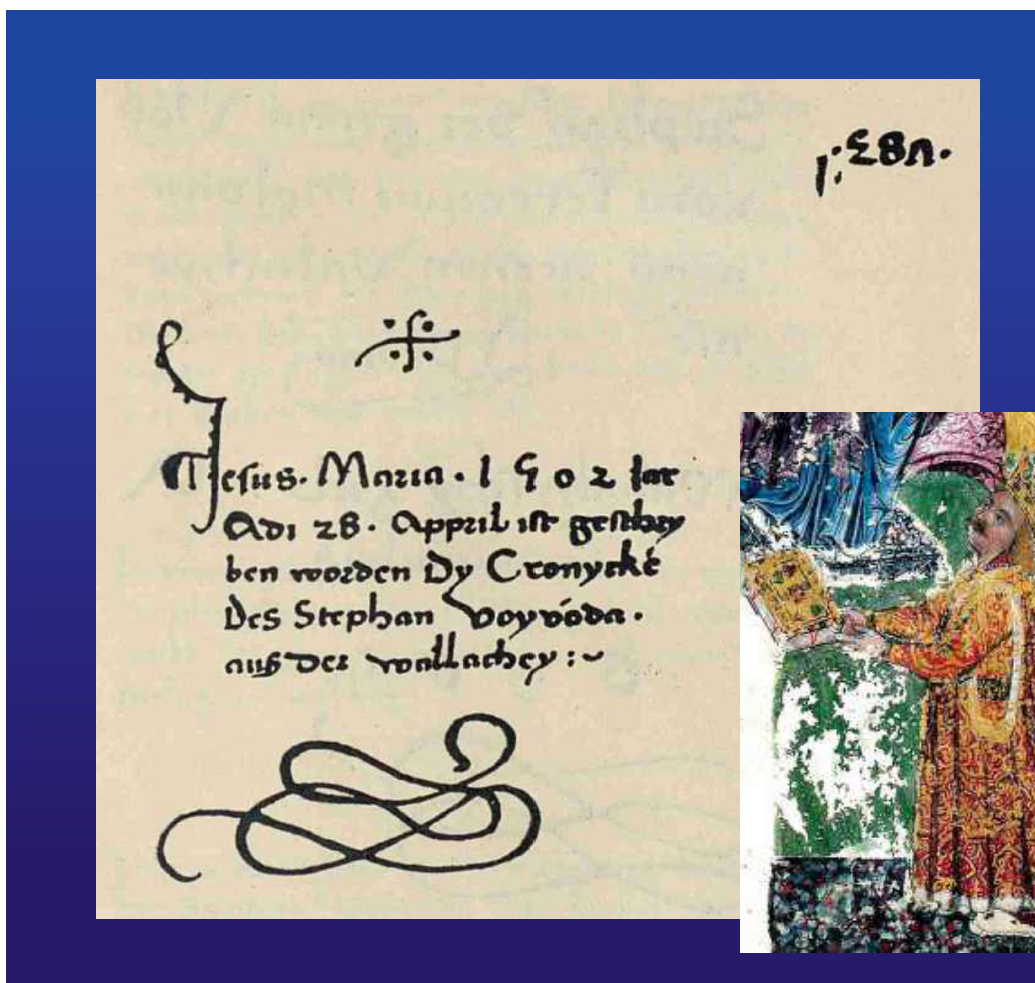 Jesus. Maria. 1502 Jar
Adi 28. Appril ist geschry
ben worden Dy Cronycke
Des Stephan Voyvoda.
auß Der wallachey :~